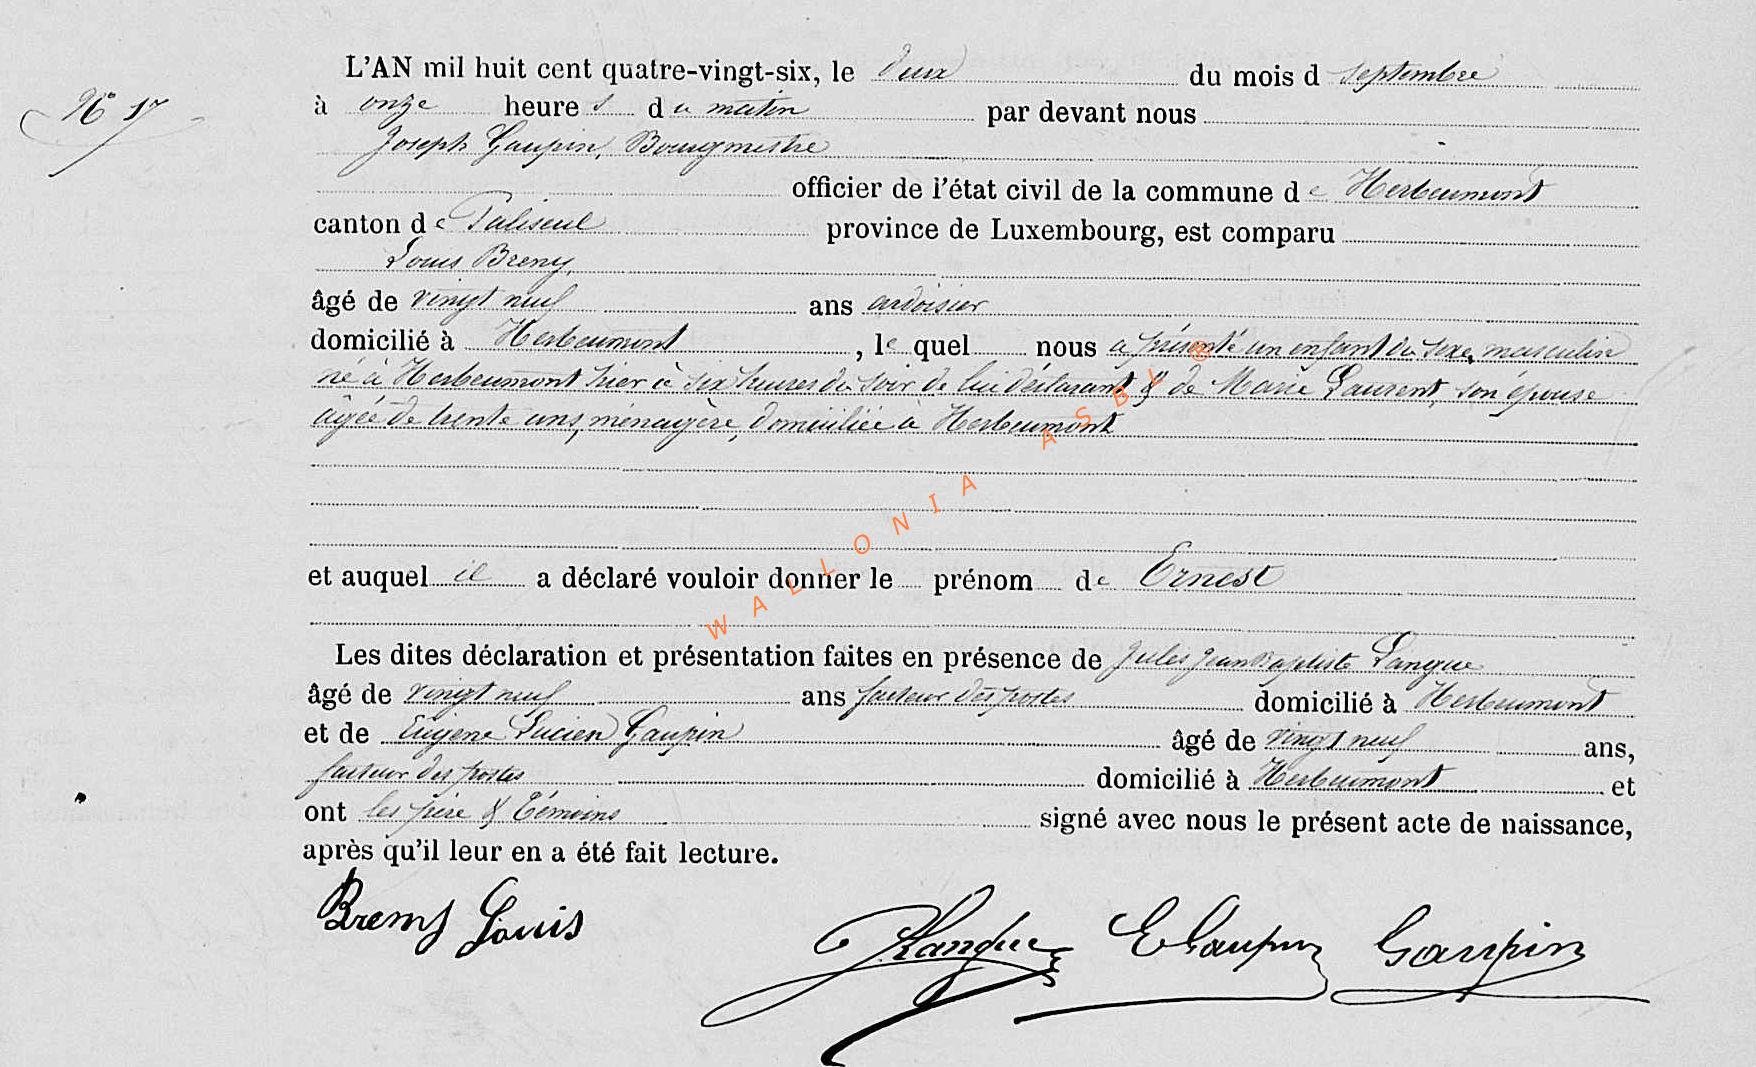 L'AN mil huit cent quatre-vingt-six, le deux du mois d septembre
N° 17
à onze heures du matin par devant nous
Joseph Gaupin, Bourgmestre
officier de l'état civil de la commune de Herbeumont
canton de Paliseul province de Luxembourg, est comparu
Louis Breny,
âgé de vingt neuf ans ardoisier
domicilié à Herbeumont, le quel nous a présenté un enfant du sexe masculin
né à Herbeumont hier à six heures du soir de lui déclarant & de Marie Laurent, son épouse
âgée de trente ans, ménagère, domiciliée à Herbeumont
et auquel il a déclaré vouloir donner le prénom de Ernest
Les dites déclaration et présentation faites en présence de Jules Jean Baptiste Langue
âgé de vingt neuf ans facteur des postes domicilié à Herbeumont
et de Eugène Lucien Gaupin âgé de vingt neuf ans,
facteur des postes domicilié à Herbeumont et
ont les père & témoins signé avec nous le présent acte de naissance,
après qu'il leur en a été fait lecture.
Breny Louis Langue E Gaupin Gaupin
WALLONIA ASBL ®